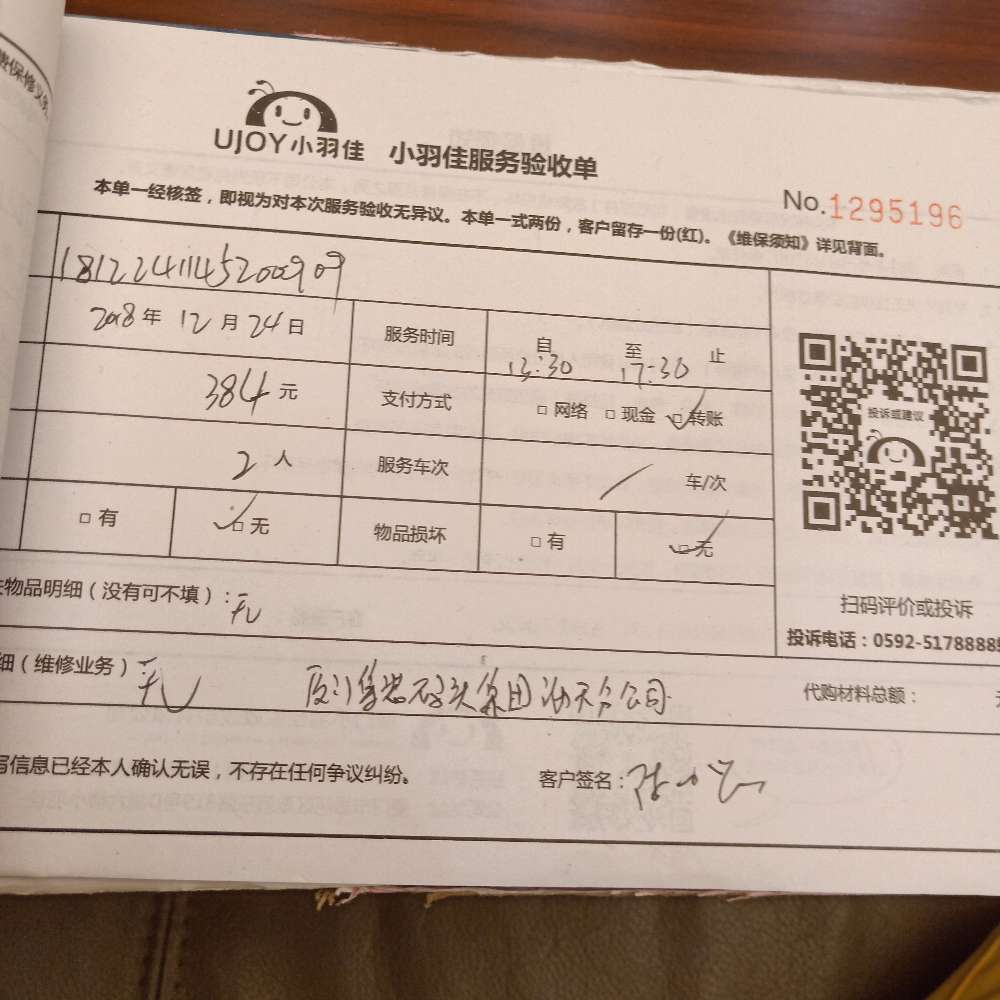 UJOY小羽佳 小羽佳服务验收单
No.1295196
本单一经核签，即视为对本次服务验收无异议。本单一式两份，客户留存一份(红)。《维保须知》详见背面。
1812241145200909
2018年 12月 24日 服务时间 自 13:30 至 17:30 止
384元 支付方式 □ 网络 □ 现金 □ 转账
2人 服务车次 / 车/次
□ 有 □ 无 物品损坏 □ 有 □ 无
投诉或建议
扫码评价或投诉
投诉电话：0592-5178888
物品明细（没有可不填）：无
细（维修业务） 无 码头集团 公司
代购材料总额：
写信息已经本人确认无误，不存在任何争议纠纷。 客户签名：